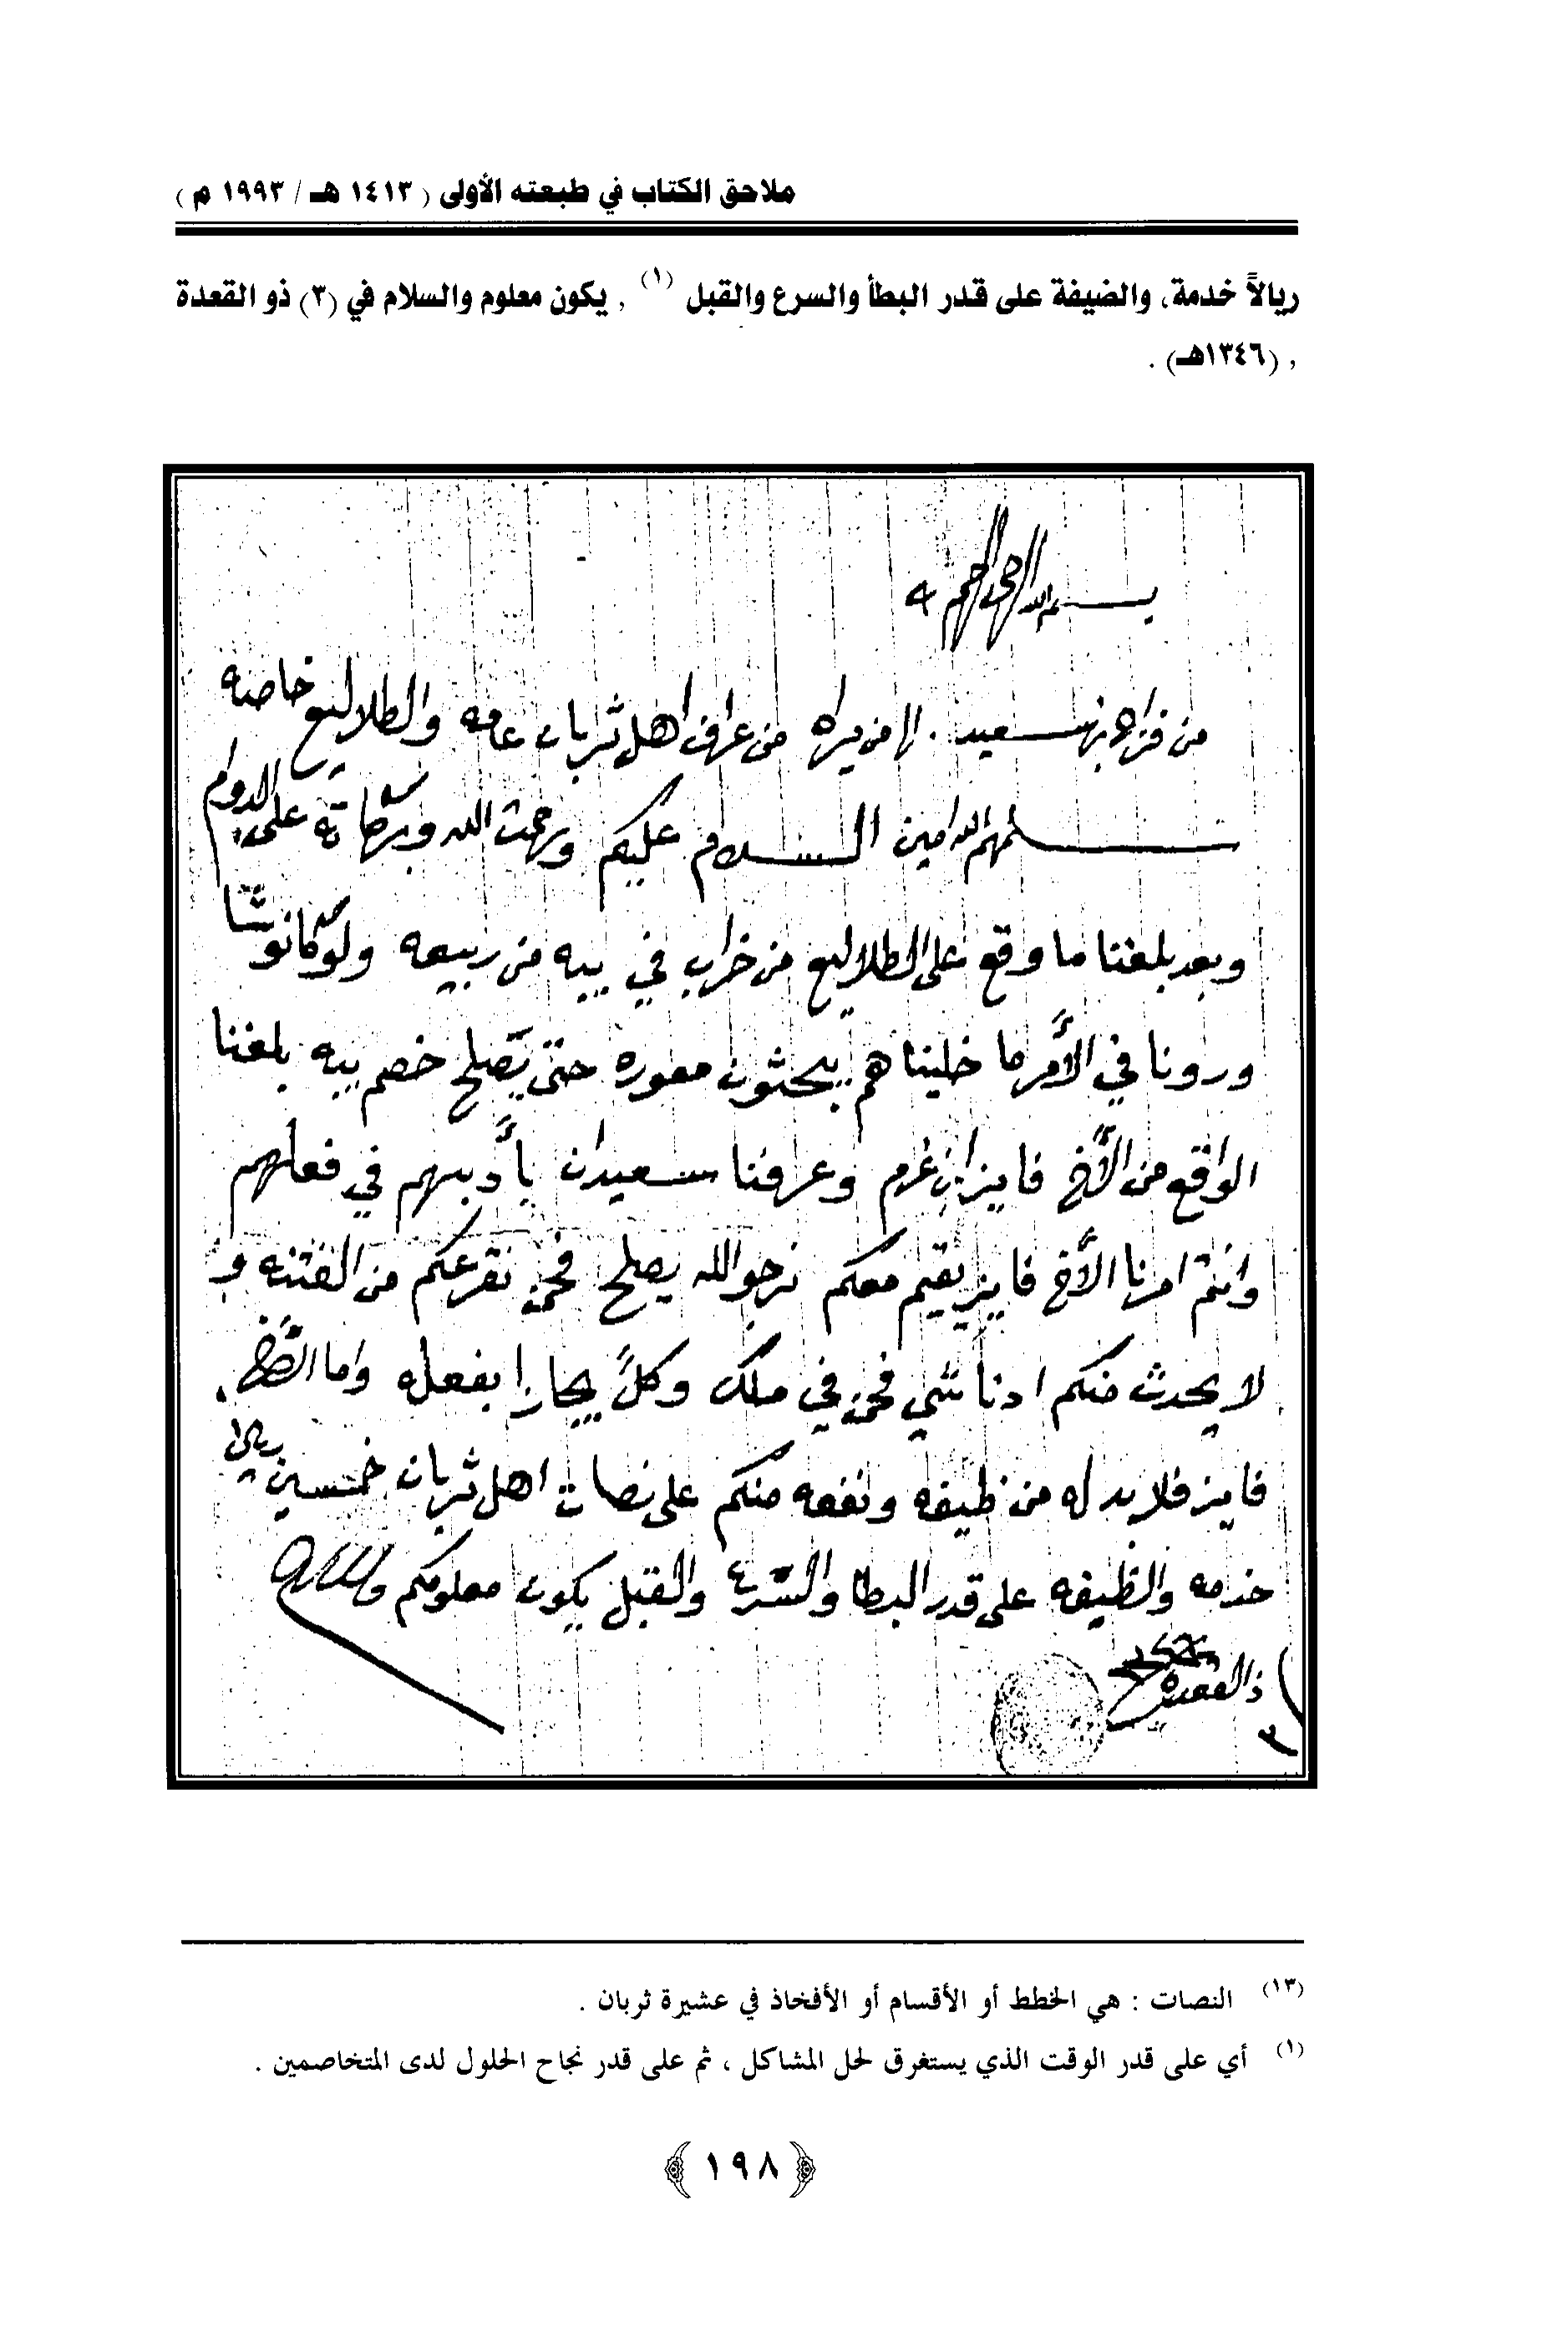 ملاحق الكتاب في طبعته الأولى ( ١٤١٣ هـ / ١٩٩٣ م )
ريالاً خدمة، والضيفة على قدر البطأ والسرع والقبل (١) , يكون معلوم والسلام في (٣) ذو القعدة
, (١٣٤٦هـ) .
بسم الله الرحمن الرحيم
من فراج بن سعيد . الا من يراه من عراف اهل ثربان عامه والطلاليع خاصه
سلمهم الله امين السلام عليكم ورحمت الله وبركاته على الدوام
وبعد بلغنا ما وقع على الطلاليع من خراب في بيه من ربيعه ولو كانو
ورونا في الأمر ما خليناهم يبحثون معوره حتى يصلح خصم بيه بلغنا
الواقع من الأخ فايز ابن غرم وعرفنا سعيدان بأدبهم في فعلهم
وانتم امرنا الأخ فايز يقيم معكم نرجو الله يصلح فحن نقرعكم من الفتنه و
لا يحدث منكم ادنا شي فحن في ملك وكلً يجازا بفعله واما الأخ
فايز فلا بد له من ظيفه ونفعه منكم على نصات اهل ثربان خمسين ريال
خدمه والظيفه على قدر البطا والسرع والقبل يكون معلومكم والسلام
ذالقعده
٣
(١٣) النصات : هي الخطط أو الأقسام أو الأفخاذ في عشيرة ثربان .
(١) أي على قدر الوقت الذي يستغرق لحل المشاكل ، ثم على قدر نجاح الحلول لدى المتخاصمين .
﴿ ١٩٨ ﴾